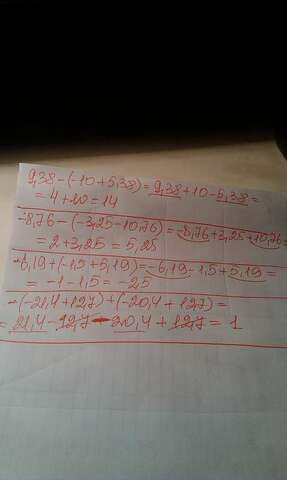 9,38-(-10+5,38)=9,38+10-5,38=
=4+10=14
-8,76-(-3,25-10,76)=-8,76+3,25+10,76=
=2+3,25=5,25
-6,19+(-1,5+5,19)=-6,19-1,5+5,19=
=-1-1,5=-2,5
-(-21,4+12,7)+(-20,4+12,7)=
=21,4-12,7-20,4+12,7=1